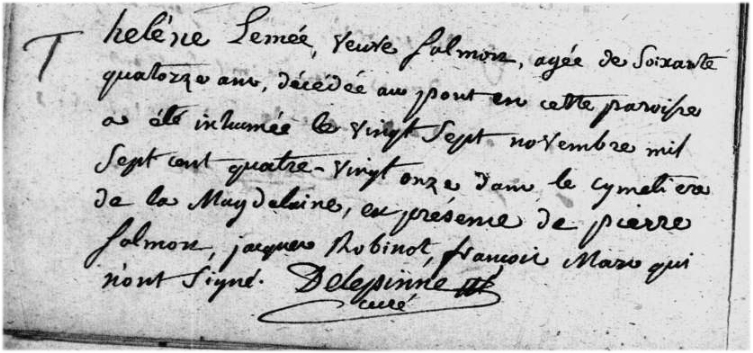 heléne Lemée, veuve Salmon, agée de Soixante
quatorze ans, décédée au pont en cette paroisse
a été inhumée le vingt Sept novembre mil
Sept cent quatre-vingt onze dans le cymetiere
de la Magdelaine, en présence de pierre
Salmon, jacques Robinot, françois Mare qui
n'ont Signé. Delepinne
curé